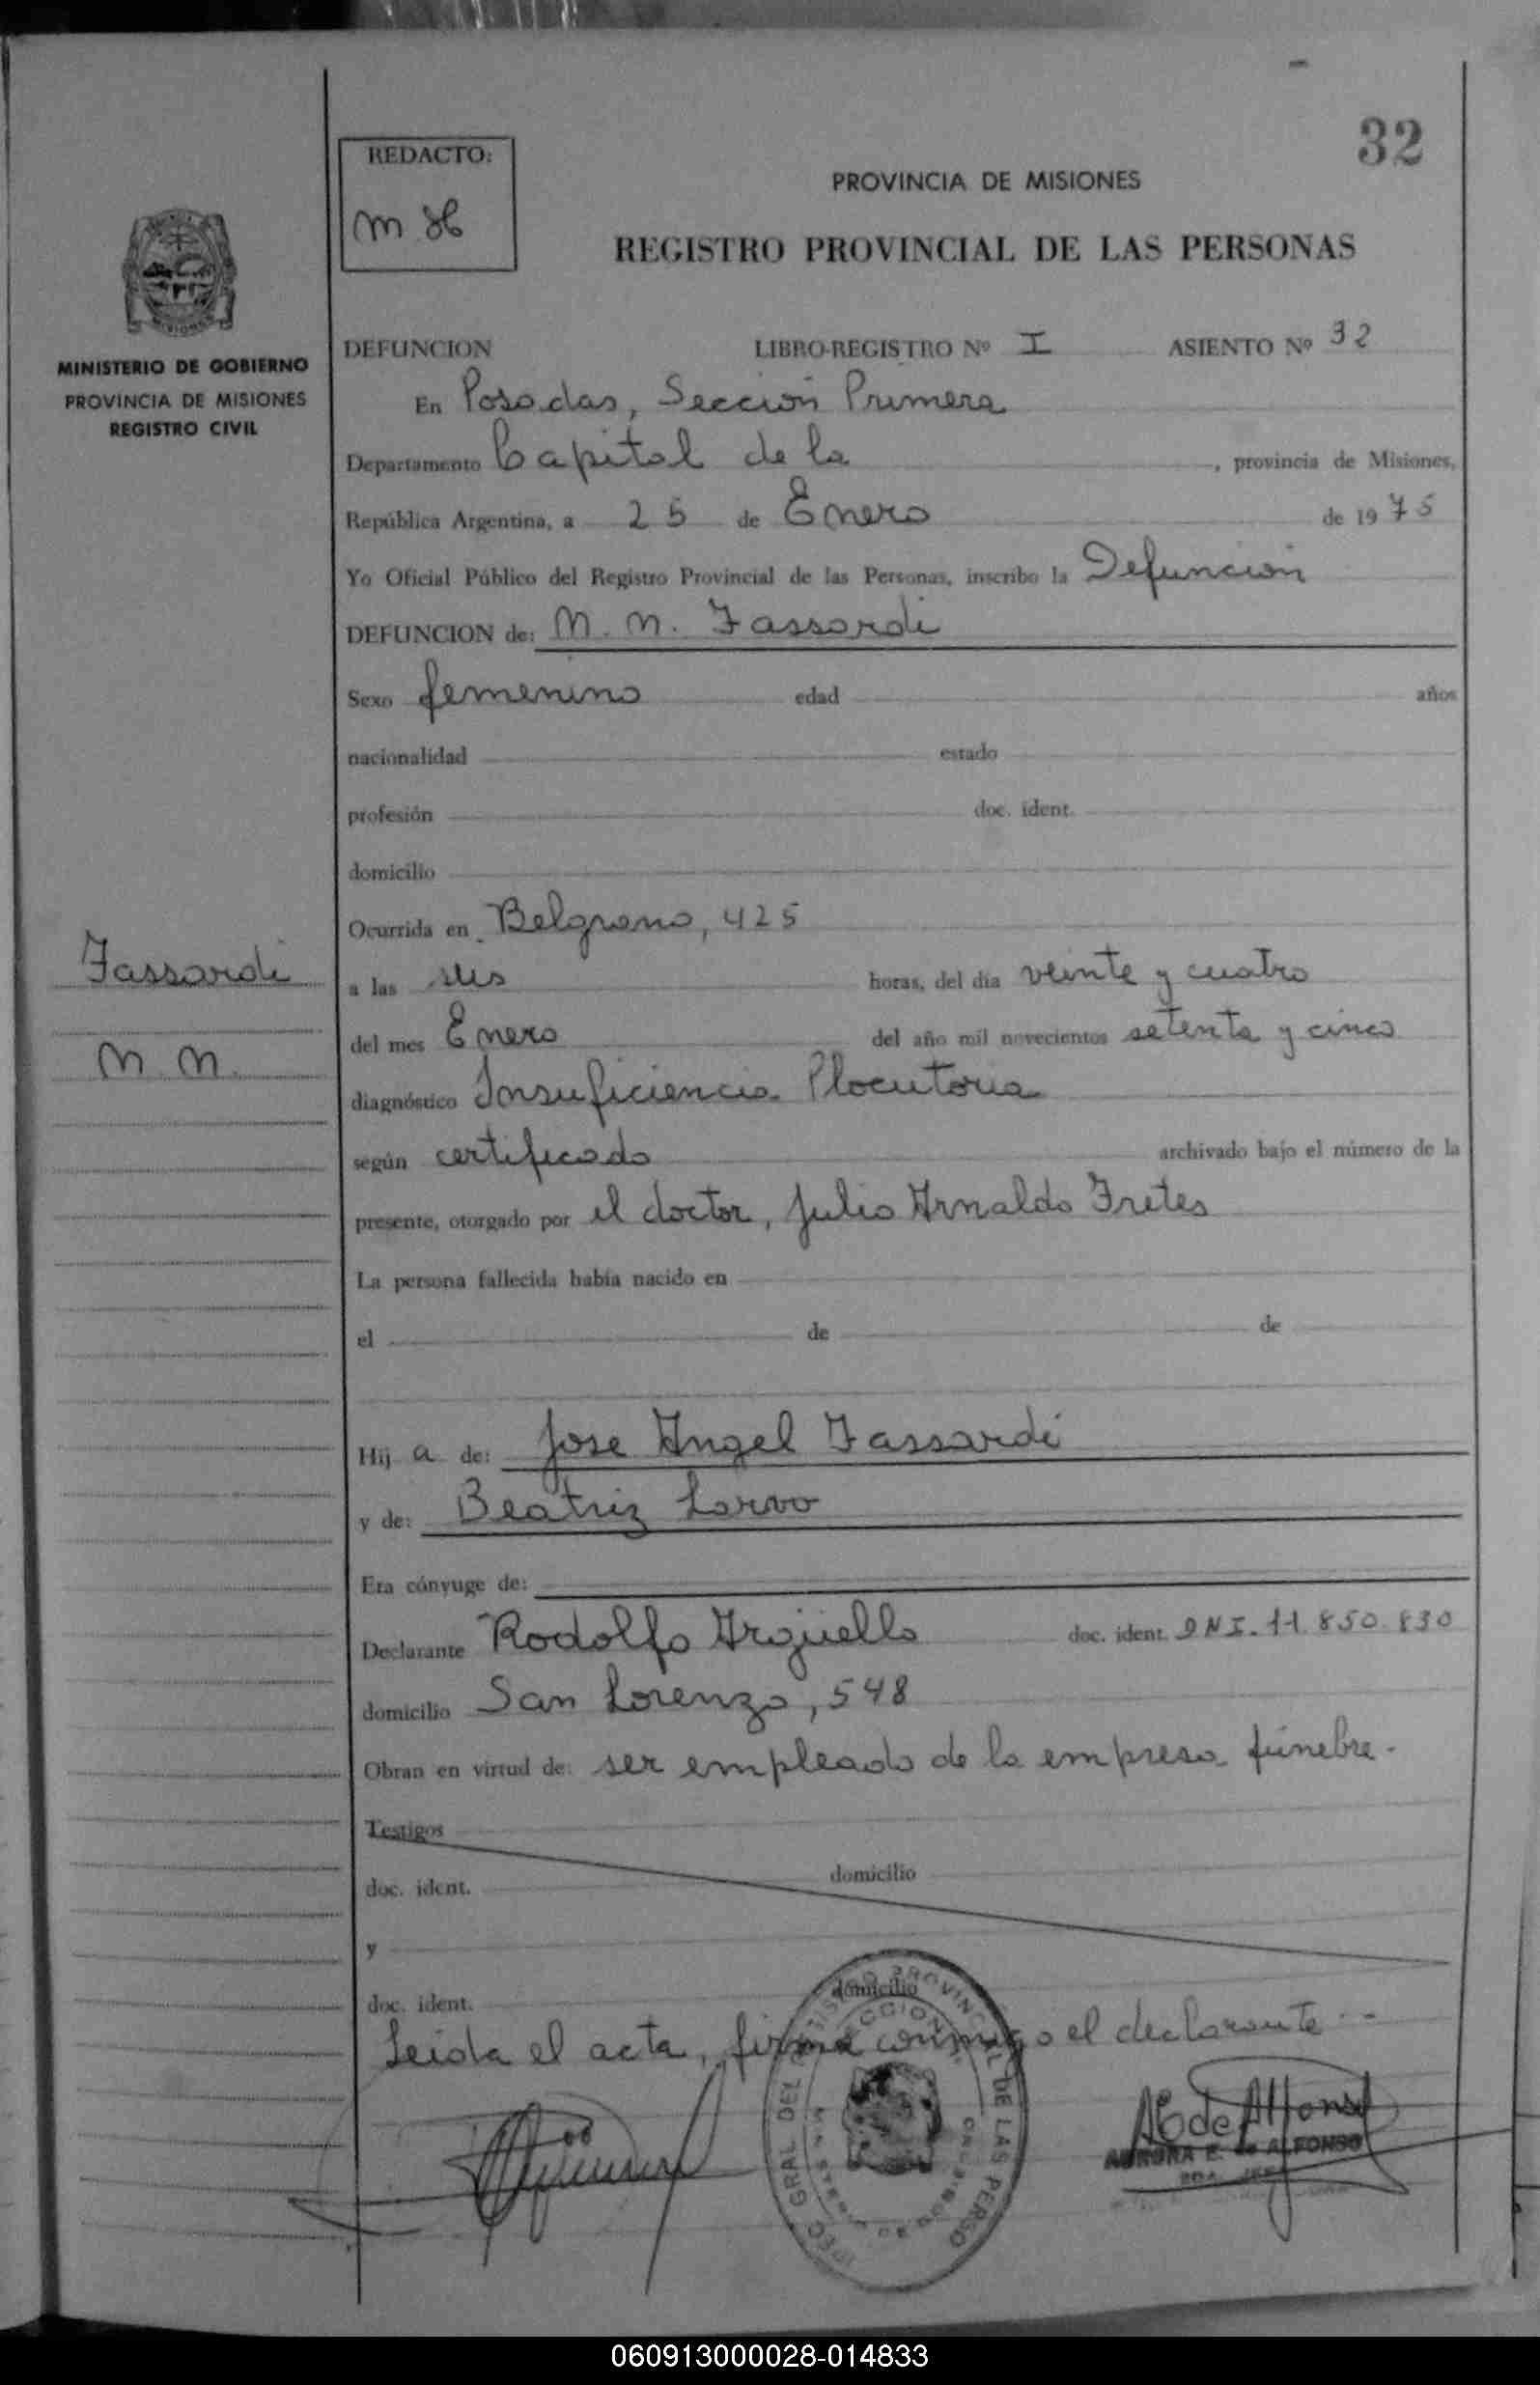 32
REDACTO:
PROVINCIA DE MISIONES
REGISTRO PROVINCIAL DE LAS PERSONAS
MINISTERIO DE GOBIERNO
PROVINCIA DE MISIONES
REGISTRO CIVIL
DEFUNCION LIBRO-REGISTRO Nº I ASIENTO Nº 32
En Posadas, Sección Primera
Departamento Capital de la , provincia de Misiones,
República Argentina, a 25 de Enero de 1975
Yo Oficial Público del Registro Provincial de las Personas, inscribo la Defunción
DEFUNCION de: N. N. Fassardi
Sexo femenino edad años
nacionalidad estado
profesión doc. ident.
domicilio
Ocurrida en Belgrano, 425
Fassardi
N. N.
a las seis horas, del día veinte y cuatro
del mes Enero del año mil novecientos setenta y cinco
diagnóstico Insuficiencia Plocutoria
según certificado archivado bajo el número de la
presente, otorgado por el doctor, Julio Arnaldo Fretes
La persona fallecida había nacido en
el de de
Hij a de: Jose Angel Fassardi
y de: Beatriz Larvo
Era cónyuge de:
Declarante Rodolfo Argüello doc. ident. DNI. 11.850.830
domicilio San Lorenzo, 548
Obran en virtud de: ser empleado de la empresa fúnebre.-
Testigos
doc. ident. domicilio
y
doc. ident. domicilio
Leida el acta, firma conmigo el declarante --
AURORA E. de ALFONSO
060913000028-014833